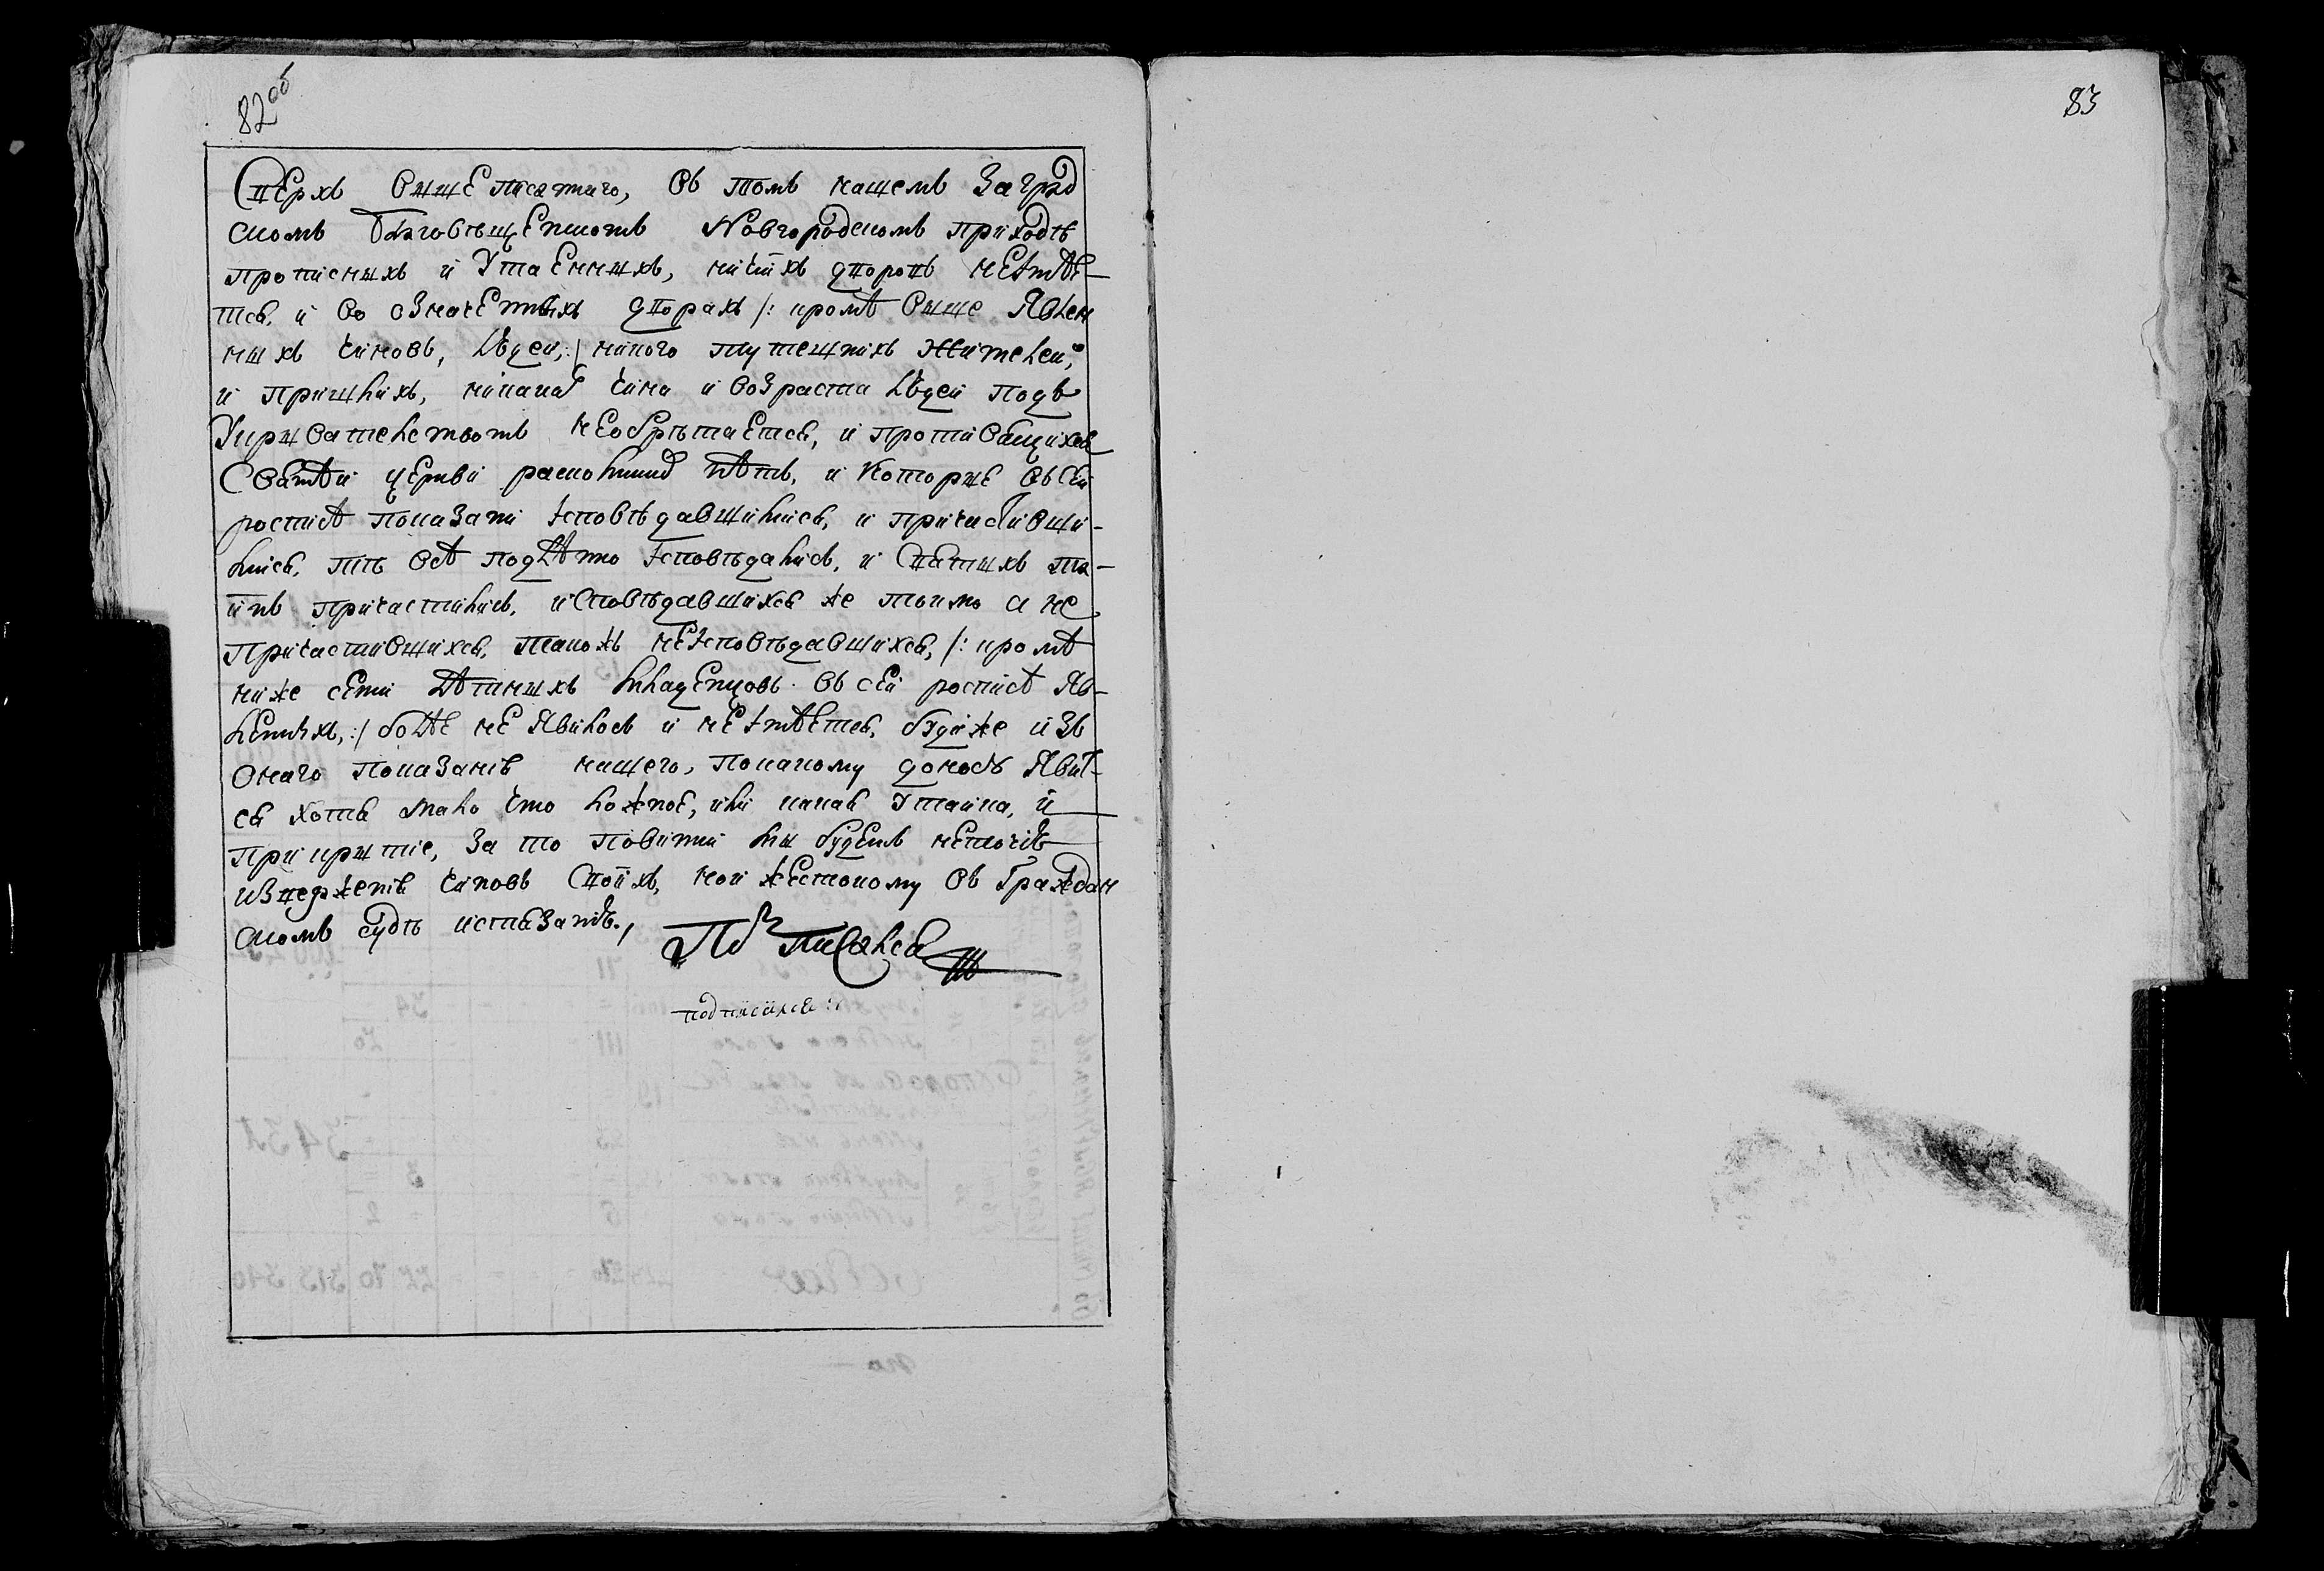 82об
83
Сверхъ вышеписаннаго, въ томъ нашемъ Заград
скомъ благовѣщенскомъ Новгородскомъ приходѣ
прописныхъ и Утаенныхъ, ничьихъ дворовъ неімѣе-
тся, и во означенныхъ дворахъ /: кромѣ выше Явлен
ныхъ чиновъ, людей, :/ никого тутешнихъ жителей,
и пришлыхъ, никакова чина и возраста людей подъ
Укрывателствомъ необрѣтается, и противящихся
Святѣй церкви расколниковъ нѣтъ, и которые въ сей
росписѣ показани исповѣдавшимись, и причастивши-
мись, тѣ всѣ подлѣнно исповѣдались, и Святыхъ та-
инъ причастились, исповѣдавшихся же токмо а не
причастившихся, такожъ неісповѣдавшихся, /: кромѣ
ниже семи лѣтныхъ младенцовъ въ сей росписѣ Яв-
ленныхъ, :/ болѣе не Явилось и не імѣется, будиже изъ
онаго показанія нашего, покакому доносу Явит-
ся хотя мало что ложное, или какая Утайка, и
прикрытіе, за то повинни мы будемъ неточію
изверженія чиновъ Своихъ, но и жестокому въ Граждан
скомъ судѣ истязанію,
Подписался
подписался